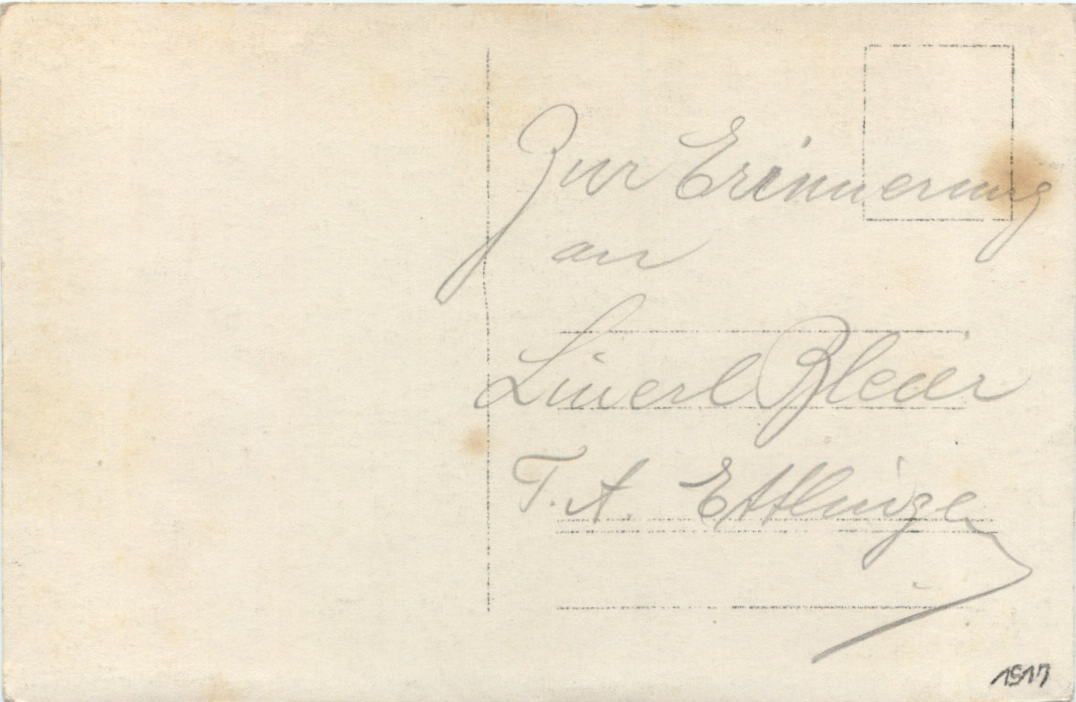 Zur Erinnerung
an
Linerl Bleier
T. A. Ettlinger
1917